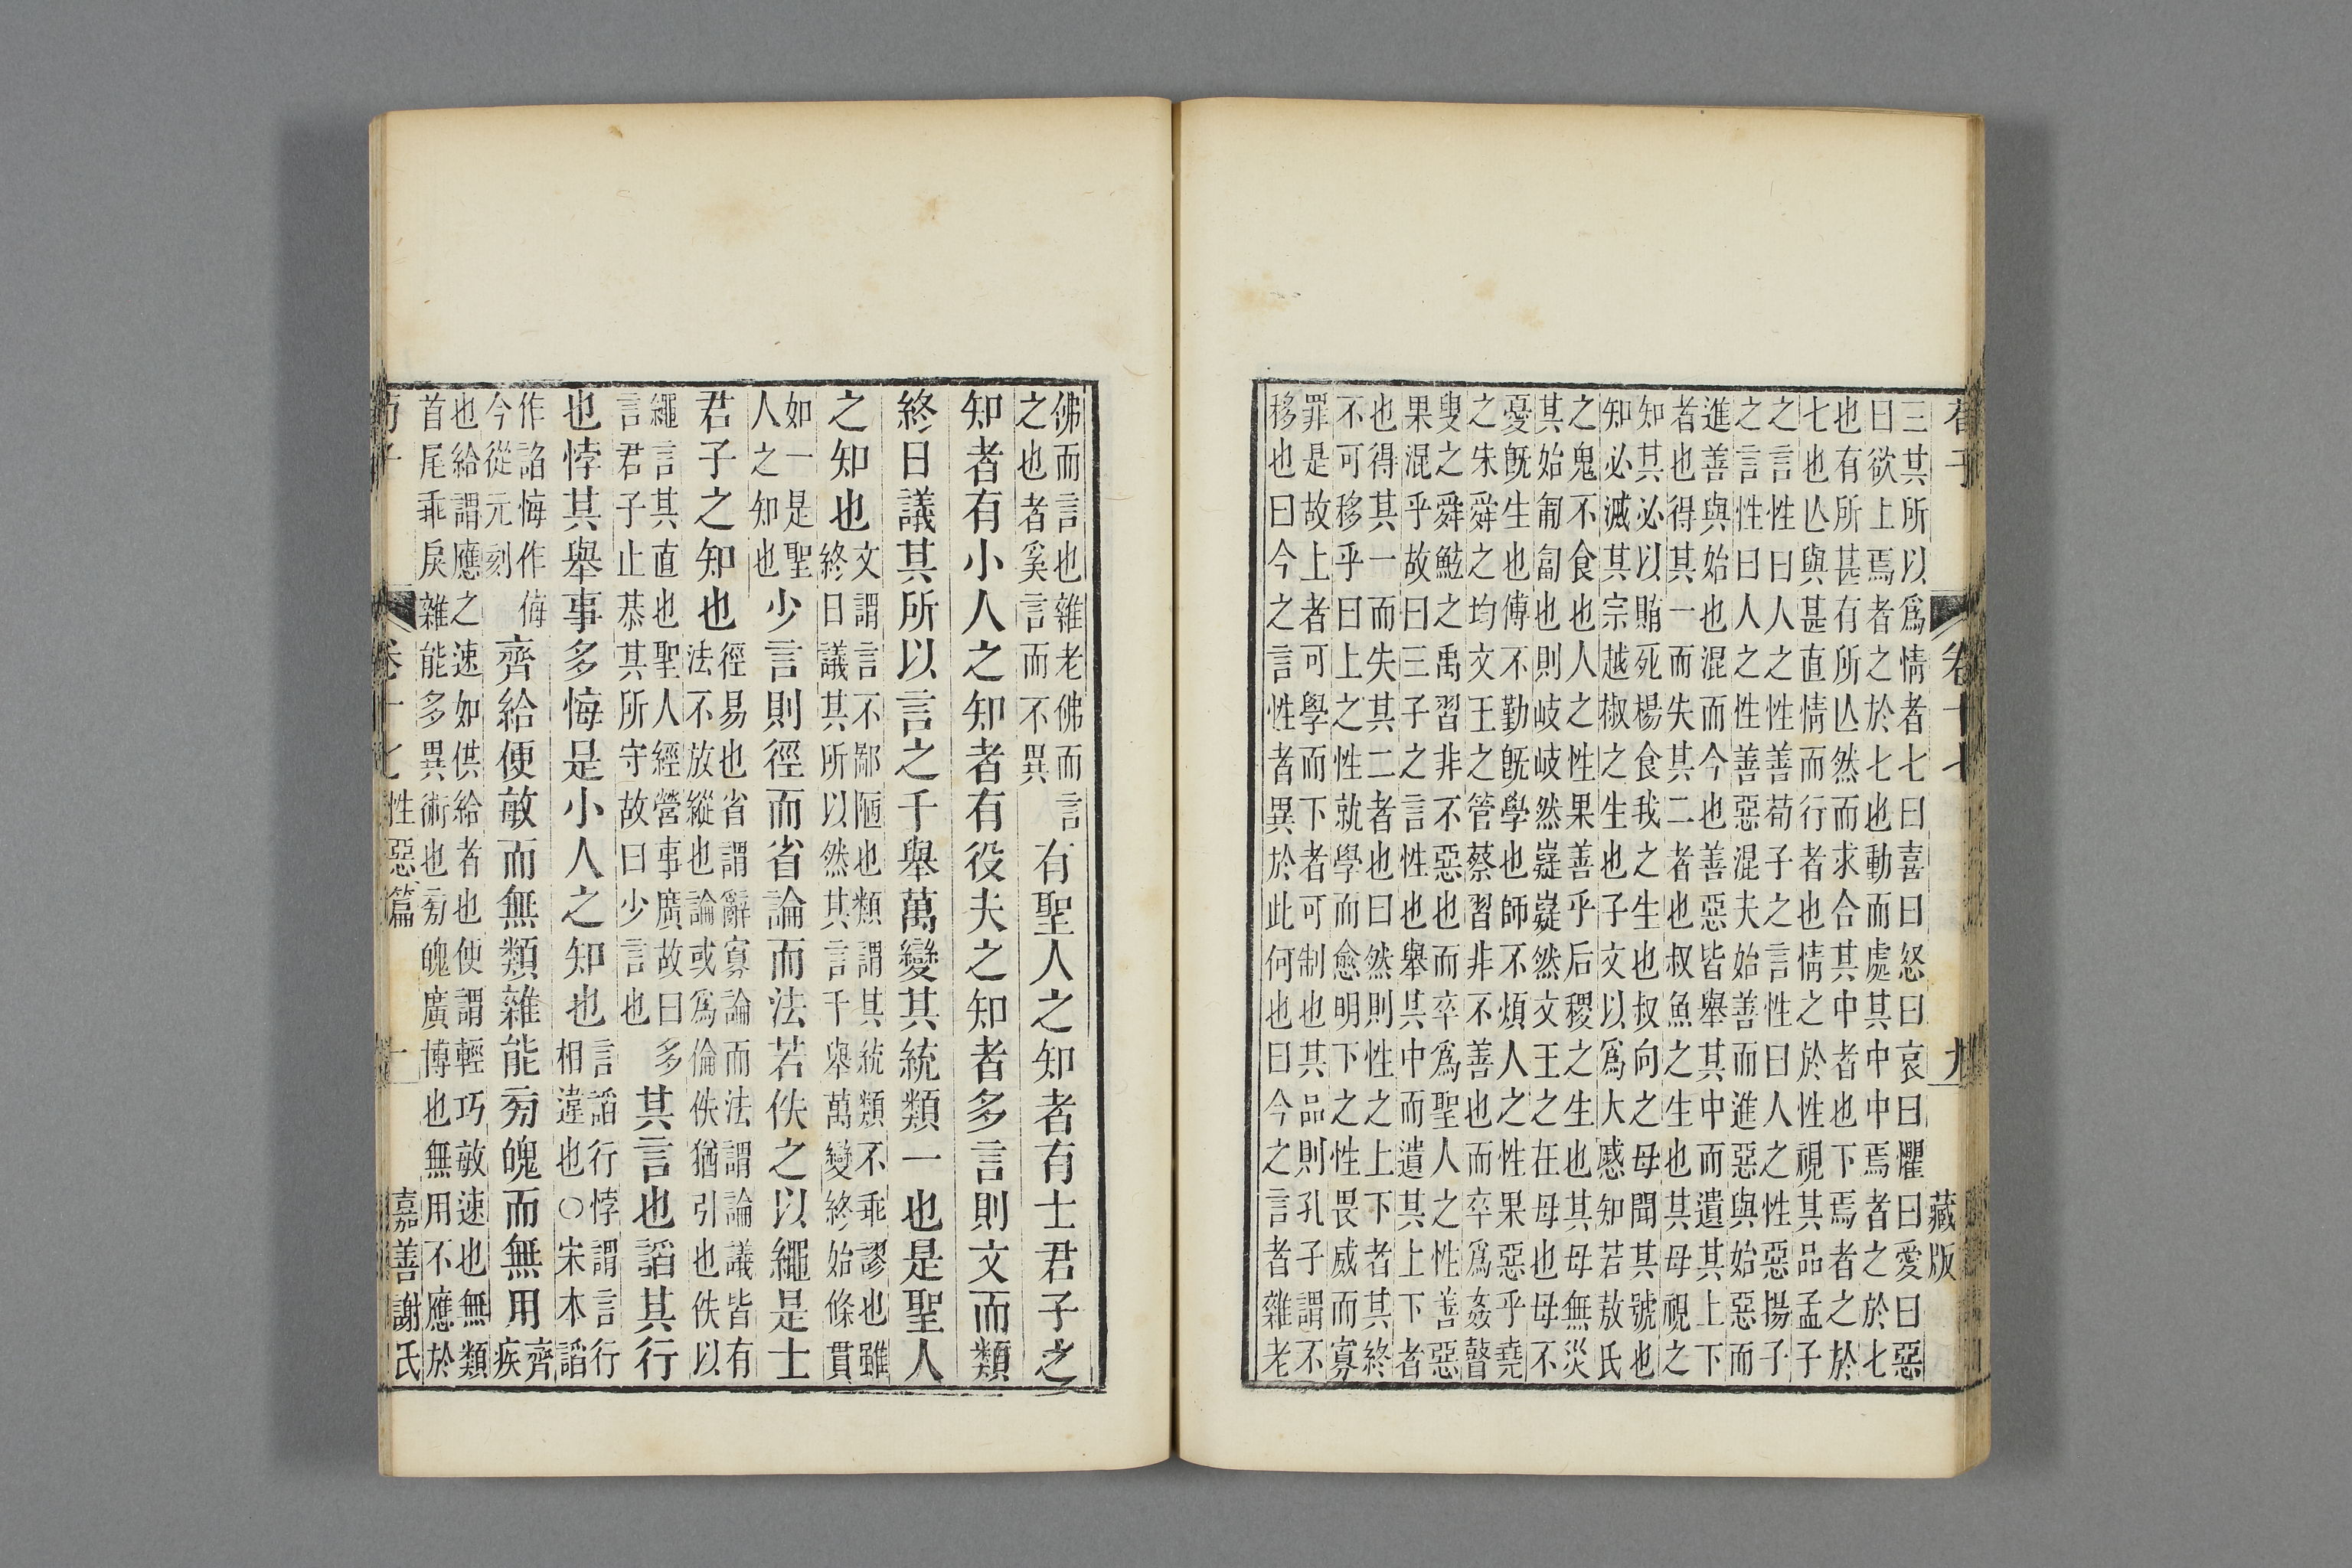 荀子　卷十七　九　藏版
三其所以爲情者七曰喜曰怒曰哀曰懼曰愛曰惡
曰欲上焉者之於七也動而處其中中焉者之於七
也有所甚有所亾然而求合其中者也下焉者之於
七也亾與甚直情而行者也情之於性視其品孟子
之言性曰人之性善荀子之言性曰人之性惡揚子
之言性曰人之性善惡混夫始善而進惡與始惡而
進善與始也混而今也善惡皆舉其中而遺其上下
者也得其一而失其二者也叔魚之生也其母視之
知其必以賄死楊食我之生也叔向之母聞其號也
知必滅其宗越椒之生也子文以爲大慼知若敖氏
之鬼不食也人之性果善乎后稷之生也其母無災
其始匍匐也則岐岐然嶷嶷然文王之在母也母不
憂旣生也傅不勤旣學也師不煩人之性果惡乎堯
之朱舜之均文王之管蔡習非不善也而卒爲姦瞽
叟之舜鯀之禹習非不惡也而卒爲聖人之性善惡
果混乎故曰三子之言性也舉其中而遺其上下者
也得其一而失其二者也曰然則性之上下者其終
不可移乎曰上之性就學而愈明下之性畏威而寡
罪是故上者可學而下者可制也其品則孔子謂不
移也曰今之言性者異於此何也曰今之言者雜老
佛而言也雜老佛而言之也者奚言而不異有聖人之知者有士君子之
知者有小人之知者有役夫之知者多言則文而類
終日議其所以言之千舉萬變其統類一也是聖人
之知也文謂言不鄙陋也類謂其統類不乖謬也雖終日議其所以然其言千舉萬變終始條貫
如一是聖人之知也少言則徑而省論而法若佚之以繩是士
君子之知也徑易也省謂辭寡論而法謂論議皆有法不放縱也論或爲倫佚猶引也佚以
繩言其直也聖人經營事廣故曰多言君子止恭其所守故曰少言也其言也謟其行
也悖其舉事多悔是小人之知也言謟行悖謂言行相違也○宋本謟
作諂悔作侮今從元刻齊給便敏而無類雜能旁魄而無用齊疾
也給謂應之速如供給者也便謂輕巧敏速也無類首尾乖戾雜能多異術也旁魄廣博也無用不應於
荀子　卷十七性惡篇　十　嘉善謝氏